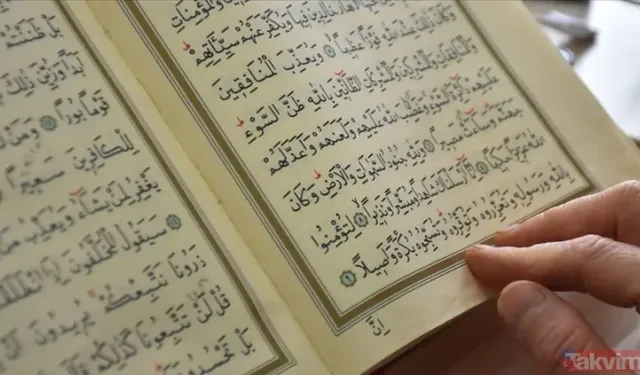 وَالْمُؤْمِنَاتِ
خَالِدِينَ فِيهَا وَيُكَفِّرَ عَنْهُمْ سَيِّئَاتِهِمْ
وَكَانَ ذٰلِكَ عِنْدَ اللّٰهِ فَوْزًا عَظِيمًا ٥ وَيُعَذِّبَ الْمُنَافِقِينَ
وَالْمُنَافِقَاتِ وَالْمُشْرِكِينَ وَالْمُشْرِكَاتِ الظَّانِّينَ بِاللّٰهِ ظَنَّ السَّوْءِ
عَلَيْهِمْ دَائِرَةُ السَّوْءِ وَغَضِبَ اللّٰهُ عَلَيْهِمْ وَلَعَنَهُمْ وَأَعَدَّ لَهُمْ
جَهَنَّمَ وَسَاءَتْ مَصِيرًا ٦ وَلِلّٰهِ جُنُودُ السَّمٰوَاتِ وَالْأَرْضِ وَكَانَ
اللّٰهُ عَزِيزًا حَكِيمًا ٧ إِنَّا أَرْسَلْنَاكَ شَاهِدًا وَمُبَشِّرًا وَنَذِيرًا ٨ لِتُؤْمِنُوا
بِاللّٰهِ وَرَسُولِهِ وَتُعَزِّرُوهُ وَتُوَقِّرُوهُ وَتُسَبِّحُوهُ بُكْرَةً وَأَصِيلًا ٩
إِنَّ
بَلْ ظَنَنْتُمْ
أَبَدًا وَزُيِّنَ ذٰلِكَ
قَوْمًا بُورًا ١٢ وَمَنْ
لِلْكَافِرِينَ سَعِيرًا ١٣
يَغْفِرُ لِمَنْ يَشَاءُ وَيُعَذِّبُ مَنْ
سَيَقُولُ الْمُخَلَّفُونَ إِذَا انْطَلَقْتُمْ
ذَرُونَا نَتَّبِعْكُمْ يُرِيدُونَ أَنْ
قُلْ لَنْ تَتَّبِعُونَا كَذٰلِكُمْ قَالَ
بَلْ تَحْسُدُونَنَا
Takvim